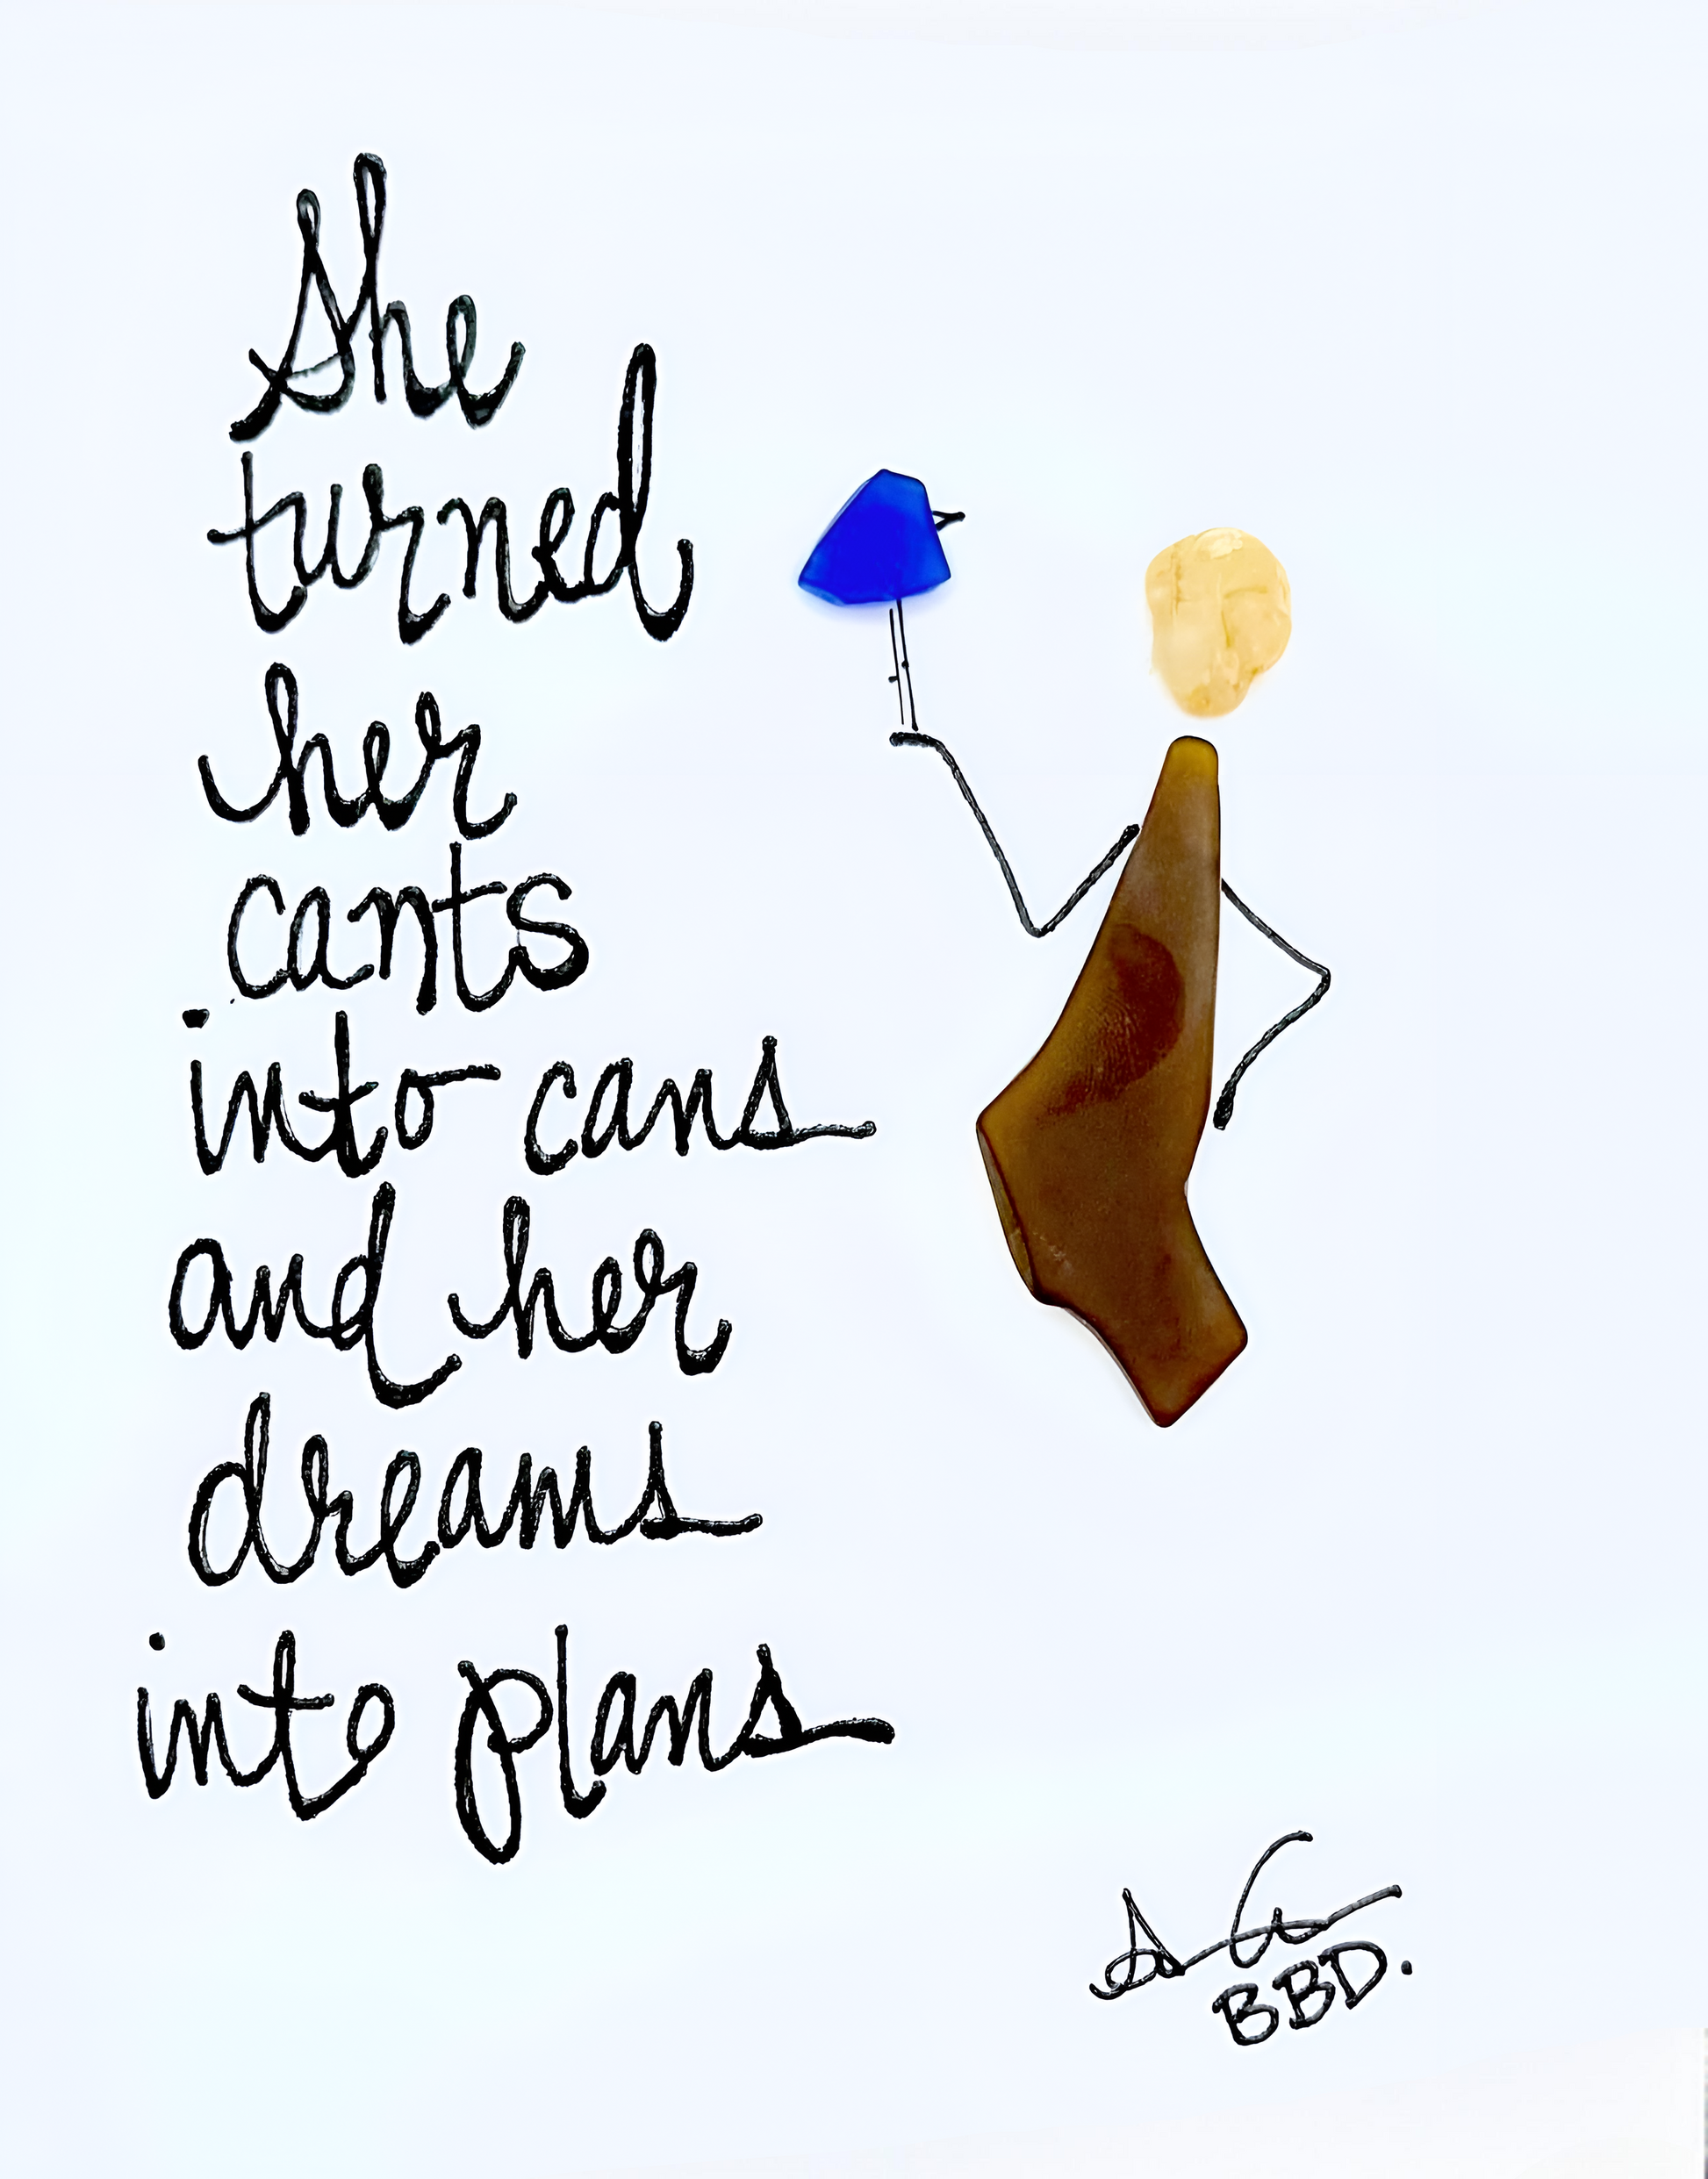 She
turned
her
cants
into cans
and her
dreams
into plans
BBD.